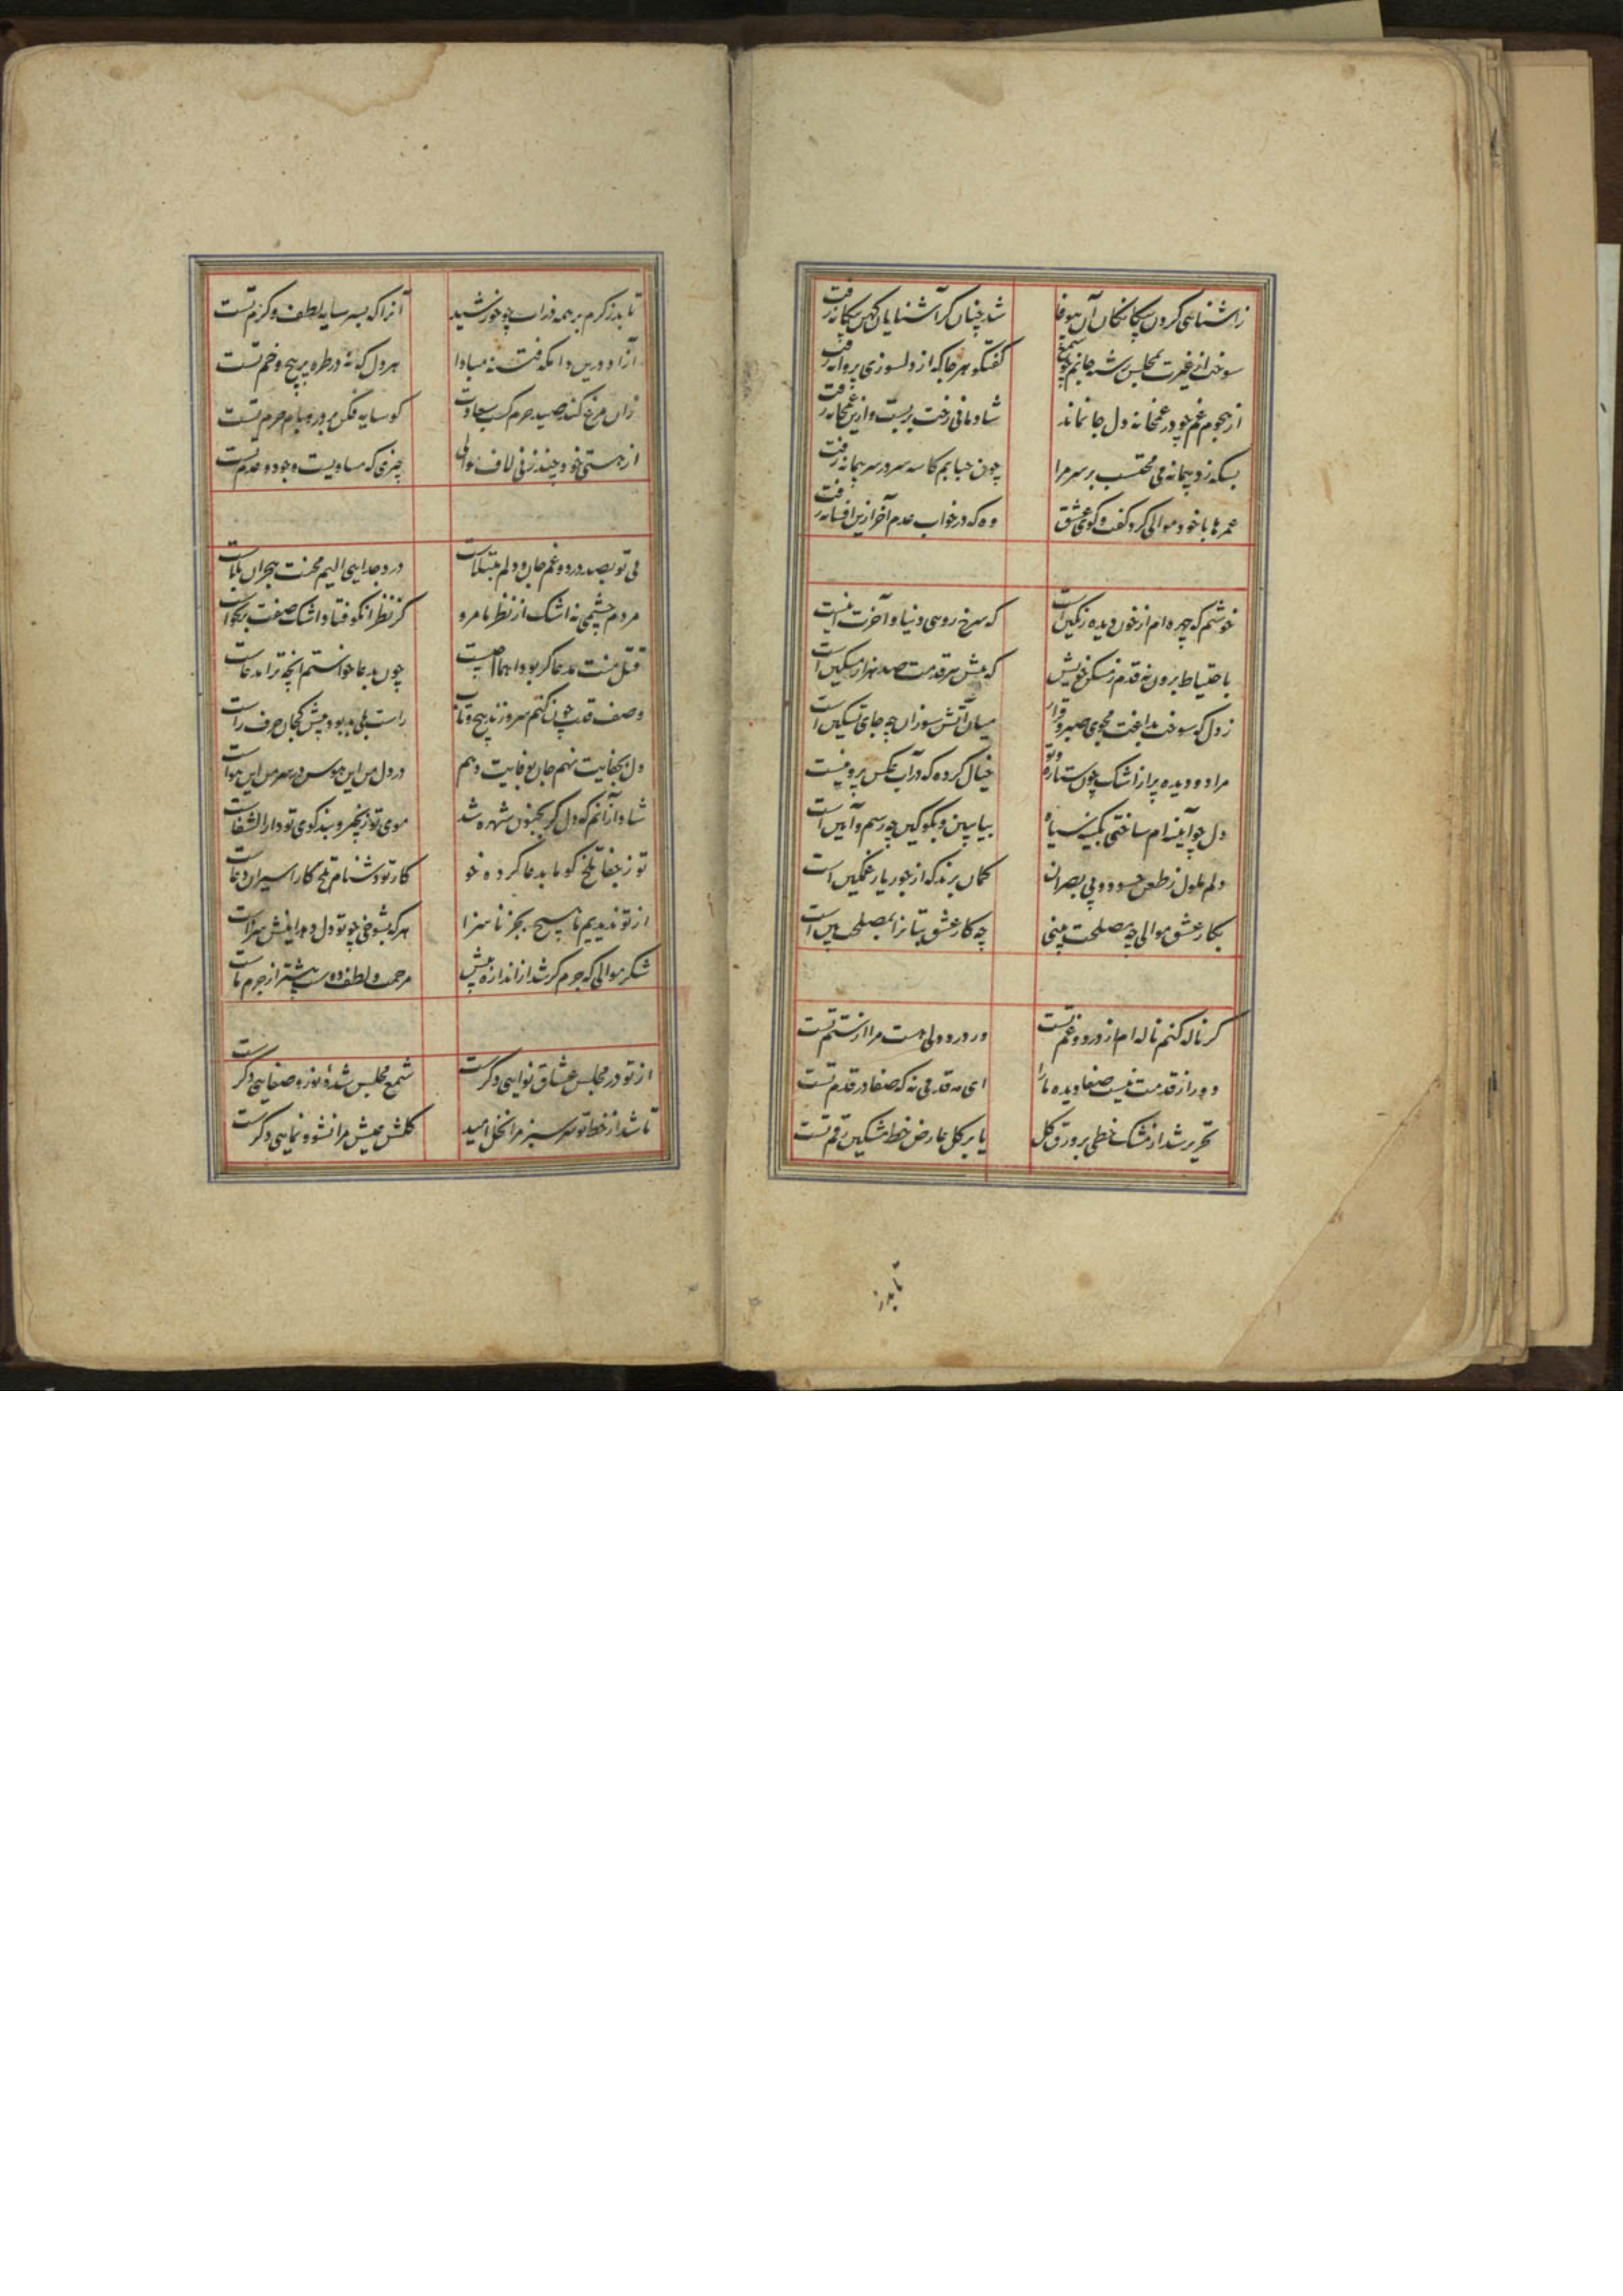 ز آشنایی کردن بیگانگان آن بیوفا
شد چنان کز آشنایان کهن بیگانه رفت
سوخت از غیرت بمجلس رشته جانم چو شمع
گفتگو هرجا که از دلسوزی پروانه رفت
از هجوم غم چو در غمخانه دل جا نماند
شادمانی رخت بربست و ازین غمخانه رفت
بسکه زد پیمانه می محتسب بر سر مرا
چون حبابم کاسه سر در سر پیمانه رفت
عمرها با خود موالی کرد گفت و گوی عشق
وه که در خواب عدم آخر ازین افسانه رفت
خوشم که چهره ام از خون دیده رنگین است
که سرخ رویی دنیا و آخرت اینست
باحتیاط برون نه قدم ز مسکن خویش
که پیش هر قدمت صد هزار مسکین است
ز دل که سوخت بداغت مجوی صبر و قرار
میان آتش سوزان چه جای تسکین است
مرا دو دیده پر از اشک چون ستاره و تو
خیال کرده که در آب عکس پروینست
دل چو آینه ام ساختی بکینه سیاه
بیا ببین و بگو کین چه رسم و آیین است
دلم ملول ز طعن حسود و بی بصران
گمان برند که از جور یار غمگین است
بکار عشق موالی چه مصلحت بینی
چه کار عشق بتانرا بمصلحت بین است
گر ناله کنم ناله ام از درد و غم تست
ور درد دلی هست مرا از ستم تست
دور از قدمت نیست صفا دیده ما را
ای مه قدمی نه که صفا در قدم تست
تحریر شد از مشک خطی بر ورق گل
یا بر گل عارض خط مشکین رقم تست
تابد ز
تابد ز کرم بر همه ذرات چو خورشید
آنرا که بسر سایه لطف و کرم تست
آزاد درین دامگه فتنه مبادا
هر دل که نه در طره پر پیچ و خم تست
زان مرغ کند صید حرم کسب سعادت
کو سایه فکن بر در و بام حرم تست
از هستی خود چند زنی لاف موالی
چیزی که مساویست وجود و عدم تست
بی تو بصد درد و غم جان و دلم مبتلاست
درد جدایی الیم محنت هجران بلاست
مردم چشمی نه اشک از نظر ما مرو
کز نظر انکو فتاد اشک صفت برنخاست
قتل منت مدعا گر بود اینها صیست
چون بدعا خواستم آنچه ترا مدعاست
وصف قدت چون کنم سرو زند پیچ و تاب
راست بلی بد بود پیش کجان حرف راست
دل بجفایت نهم جان بوفایت دهم
در دل من این هوس در سر من این هواست
شاد از آنم که دل گر بجنون شهره شد
موی تو زنجیر و بند کوی تو دارالشفاست
تو ز جفا تلخ گو ما بدعا کرده خو
کار تو دشنام تلخ کار اسیران دعاست
از تو ندیدیم ما هیچ بجز ناسزا
هرکه بشوخی چو تو دل دهد اینش سزاست
شکر موالی که جرم گر شد از اندازه بیش
مرحمت و لطف دوست بیشتر از جرم ماست
از تو در مجلس عشاق نوایی دگرست
شمع مجلس شده نور و صفایی دگرست
تا شد از خط تو سرسبز مرا نخل امید
گلشن عیش مرا نشو و نمایی دگرست